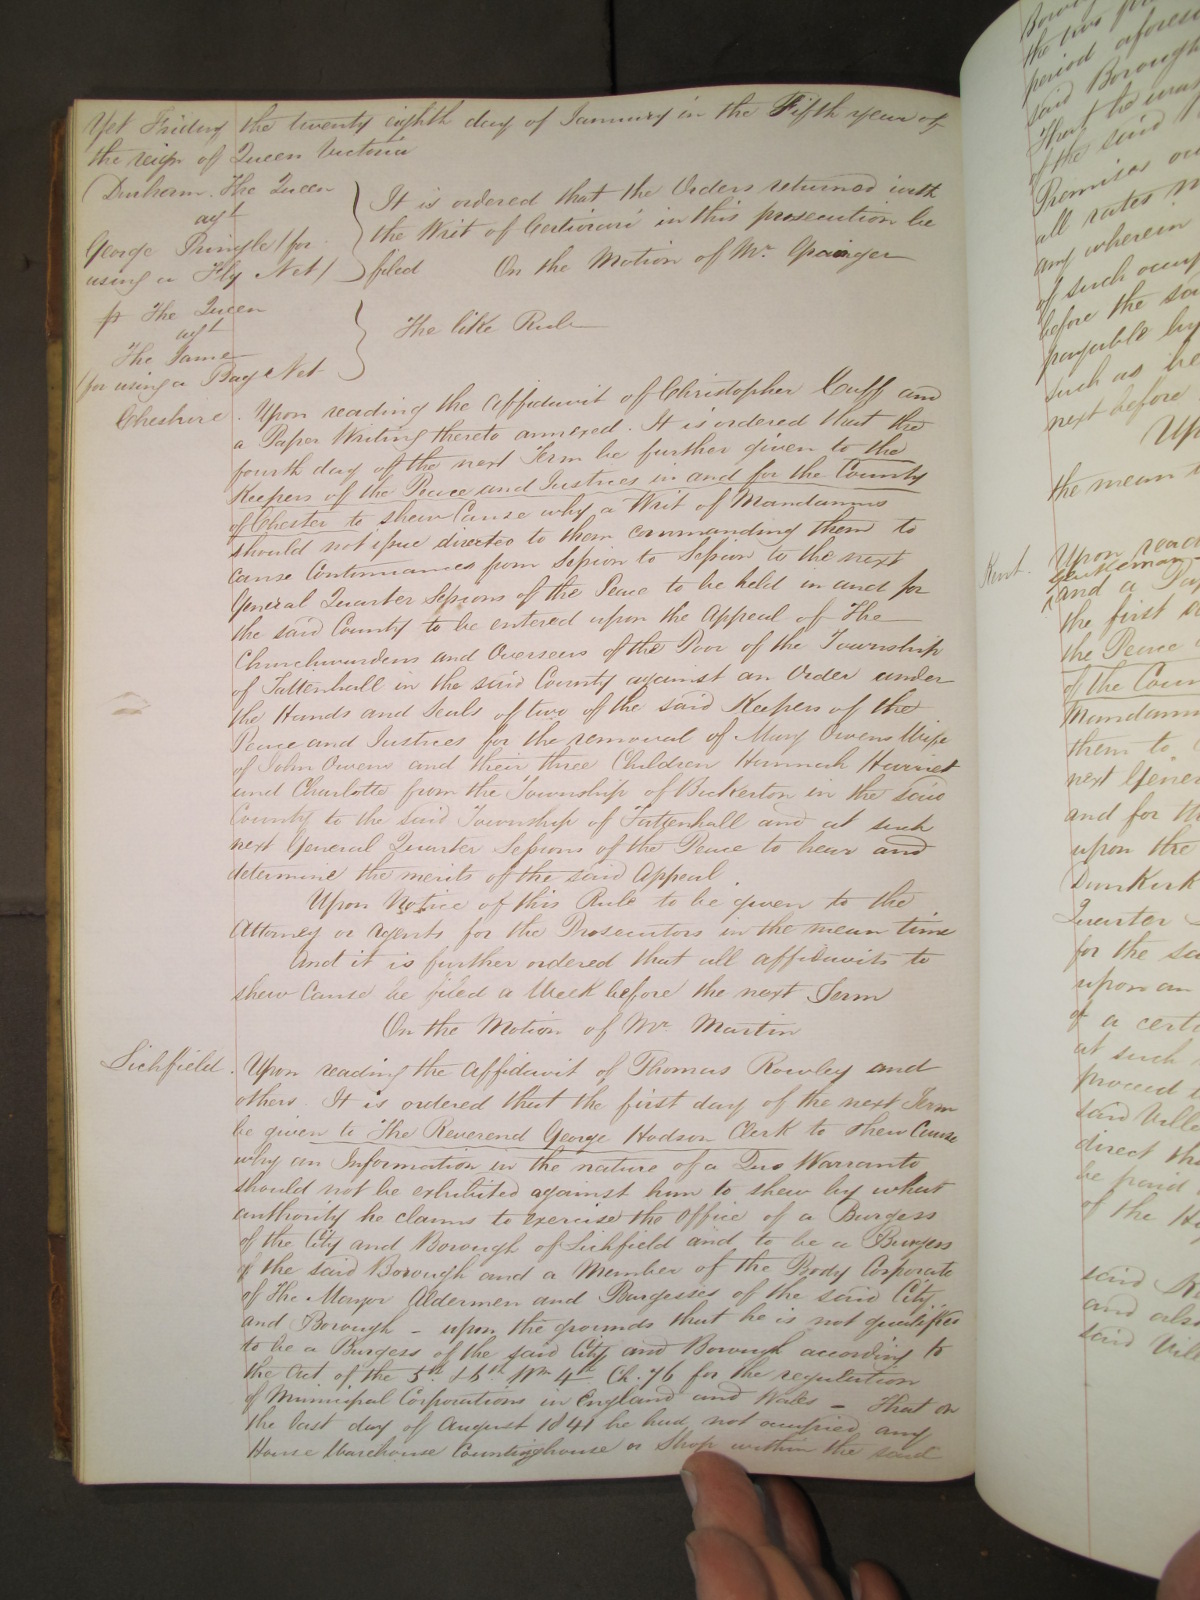 Yet Friday the twenty eighth day of January in the Fifth year of
the reign of Queen Victoria
Durham. The Queen
agt
George Pringle (for
using a Fly Net)
It is ordered that the Orders returned with
the Writ of Certiorari in this prosecution be
filed On the Motion of Mr. Grainger
The Queen
agt
The Same
(for using a Bag Net
The like Rule
Cheshire. Upon reading the Affidavit of Christopher Cuff and
a Paper Writing thereto annexed. It is ordered that the
fourth day of the next Term be further given to the
Keepers of the Peace and Justices in and for the County
of Chester to shew Cause why a Writ of Mandamus
should not issue directed to them commanding them to
cause Continuances from Session to Session to the next
General Quarter Sessions of the Peace to be held in and for
the said County to be entered upon the Appeal of The
Churchwardens and Overseers of the Poor of the Township
of Tattenhall in the said County against an Order under
the Hands and Seals of two of the said Keepers of the
Peace and Justices for the removal of Mary Owens Wife
of John Owens and their three Children Hannah Harriet
and Charlotte from the Township of Bickerton in the said
County to the said Township of Tattenhall and at such
next General Quarter Sessions of the Peace to hear and
determine the merits of the said Appeal.
Upon Notice of this Rule to be given to the
Attorney or Agents for the Prosecutors in the mean time
And it is further ordered that all affidavits to
shew Cause be filed a Week before the next Term
On the Motion of Mr. Martin
Lichfield. Upon reading the Affidavit of Thomas Rowley and
others. It is ordered that the first day of the next Term
be given to The Reverend George Hodson Clerk to shew Cause
why an Information in the nature of a Quo Warranto
should not be exhibited against him to shew by what
authority he claims to exercise the Office of a Burgess
of the City and Borough of Lichfield and to be a Burgess
of the said Borough and a Member of the Body Corporate
of The Mayor Aldermen and Burgesses of the said City
and Borough - upon the grounds that he is not qualified
to be a Burgess of the said City and Borough according to
the Act of the 5th & 6th Wm 4th Ch. 76 for the regulation
of Municipal Corporations in England and Wales - That on
the last day of August 1841 he had not occupied any
House Warehouse Countinghouse or Shop within the said
the two
period aforesa
said Borough
That he was
of the said
Premises
all rates
any wherein
of such occup
before the sa
payable by
such as
next before
Up
the mean t
Kent. Upon read
gentleman
and a Pap
the first
the Peace
of the Coun
Mandamus
them to
next Gener
and for th
upon the
Dunkirk
Quarter
for the sa
upon an
of a certa
at such
proceed
said Ville
direct tha
be paid
of the
said
and also
said Vill